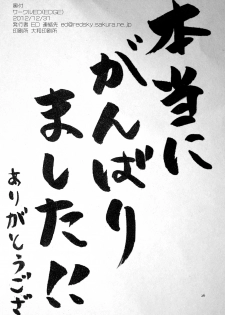 奥付
サークルED(EDIQE)
2012/12/31
発行者 ED 連絡先 ed@redsky.sakura.ne.jp
印刷所 大和印刷所
本当に
がんばり
ました!!
ありがとうござ